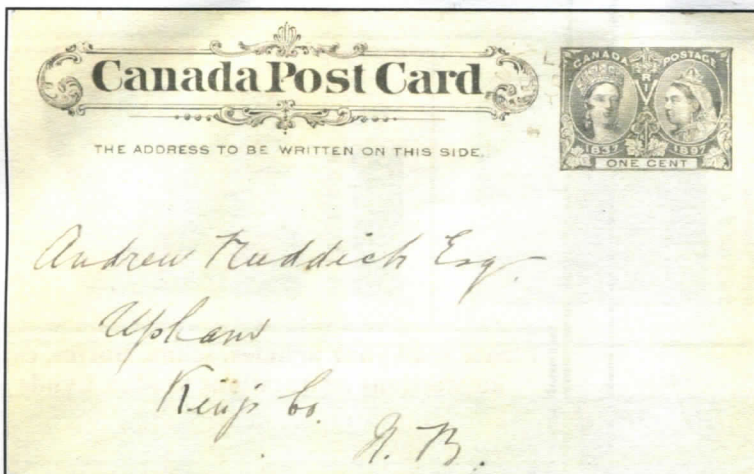 Canada Post Card
THE ADDRESS TO BE WRITTEN ON THIS SIDE.
CANADA POSTAGE
V R I
1837 1897
ONE CENT
Andrew Ruddick Esq.
Upham
King's Co.
N. B.